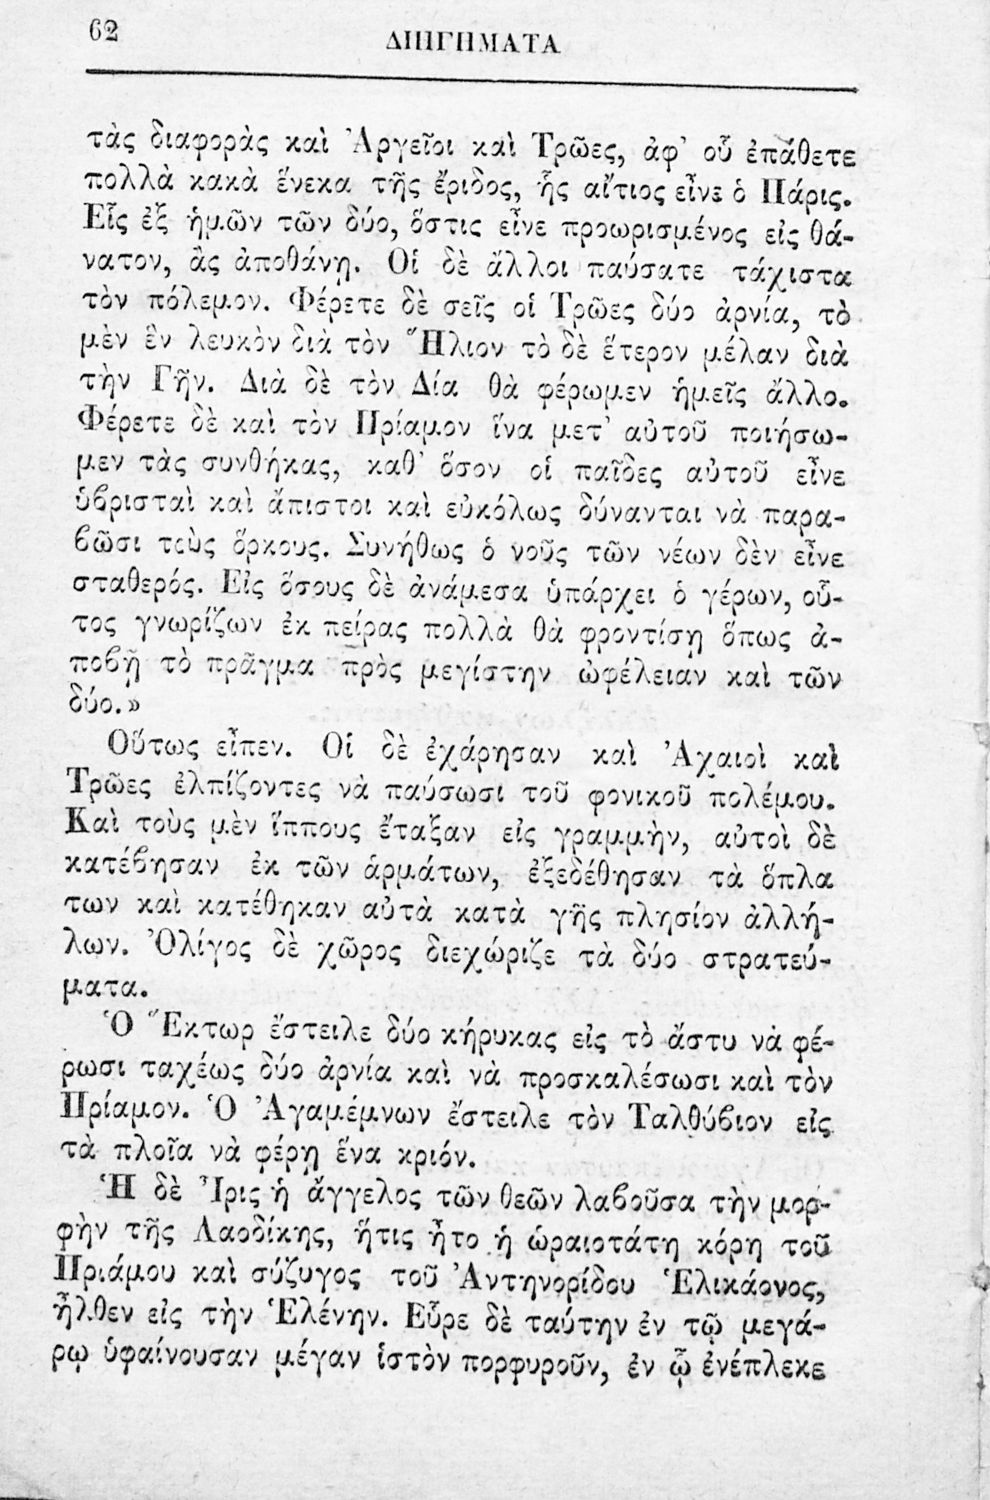 62
ΔΙΗΓΗΜΑΤΑ
τὰς διαφορὰς καὶ Ἀργεῖοι καὶ Τρῶες, ἀφ' οὗ ἐπάθετε
πολλὰ κακὰ ἕνεκα τῆς ἔριδος, ἧς αἴτιος εἶνε ὁ Πάρις.
Εἷς ἐξ ἡμῶν τῶν δύο, ὅστις εἶνε προωρισμένος εἰς θά-
νατον, ἂς ἀποθάνῃ. Οἱ δὲ ἄλλοι παύσατε τάχιστα
τὸν πόλεμον. Φέρετε δὲ σεῖς οἱ Τρῶες δύο ἀρνία, τὸ
μὲν ἓν λευκὸν διὰ τὸν Ἥλιον τὸ δὲ ἕτερον μέλαν διὰ
τὴν Γῆν. Διὰ δὲ τὸν Δία θὰ φέρωμεν ἡμεῖς ἄλλο.
Φέρετε δὲ καὶ τὸν Πρίαμον ἵνα μετ' αὐτοῦ ποιήσω-
μεν τὰς συνθήκας, καθ' ὅσον οἱ παῖδες αὐτοῦ εἶνε
ὑβρισταὶ καὶ ἄπιστοι καὶ εὐκόλως δύνανται νὰ παρα-
βῶσι τοὺς ὅρκους. Συνήθως ὁ νοῦς τῶν νέων δὲν εἶνε
σταθερός. Εἰς ὅσους δὲ ἀνάμεσα ὑπάρχει ὁ γέρων, οὗ-
τος γνωρίζων ἐκ πείρας πολλὰ θὰ φροντίσῃ ὅπως ἀ-
ποβῇ τὸ πρᾶγμα πρὸς μεγίστην ὠφέλειαν καὶ τῶν
δύο.»
Οὕτως εἶπεν. Οἱ δὲ ἐχάρησαν καὶ Ἀχαιοὶ καὶ
Τρῶες ἐλπίζοντες νὰ παύσωσι τοῦ φονικοῦ πολέμου.
Καὶ τοὺς μὲν ἵππους ἔταξαν εἰς γραμμὴν, αὐτοὶ δὲ
κατέβησαν ἐκ τῶν ἁρμάτων, ἐξεδέθησαν τὰ ὅπλα
των καὶ κατέθηκαν αὐτὰ κατὰ γῆς πλησίον ἀλλή-
λων. Ὀλίγος δὲ χῶρος διεχώριζε τὰ δύο στρατεύ-
ματα.
Ὁ Ἕκτωρ ἔστειλε δύο κήρυκας εἰς τὸ ἄστυ νὰ φέ-
ρωσι ταχέως δύο ἀρνία καὶ νὰ προσκαλέσωσι καὶ τὸν
Πρίαμον. Ὁ Ἀγαμέμνων ἔστειλε τὸν Ταλθύβιον εἰς
τὰ πλοῖα νὰ φέρῃ ἕνα κριόν.
Ἡ δὲ Ἶρις ἡ ἄγγελος τῶν θεῶν λαβοῦσα τὴν μορ-
φὴν τῆς Λαοδίκης, ἥτις ἦτο ἡ ὡραιοτάτη κόρη τοῦ
Πριάμου καὶ σύζυγος τοῦ Ἀντηνορίδου Ἑλικάονος,
ἦλθεν εἰς τὴν Ἑλένην. Εὗρε δὲ ταύτην ἐν τῷ μεγά-
ρῳ ὑφαίνουσαν μέγαν ἱστὸν πορφυροῦν, ἐν ᾧ ἐνέπλεκε